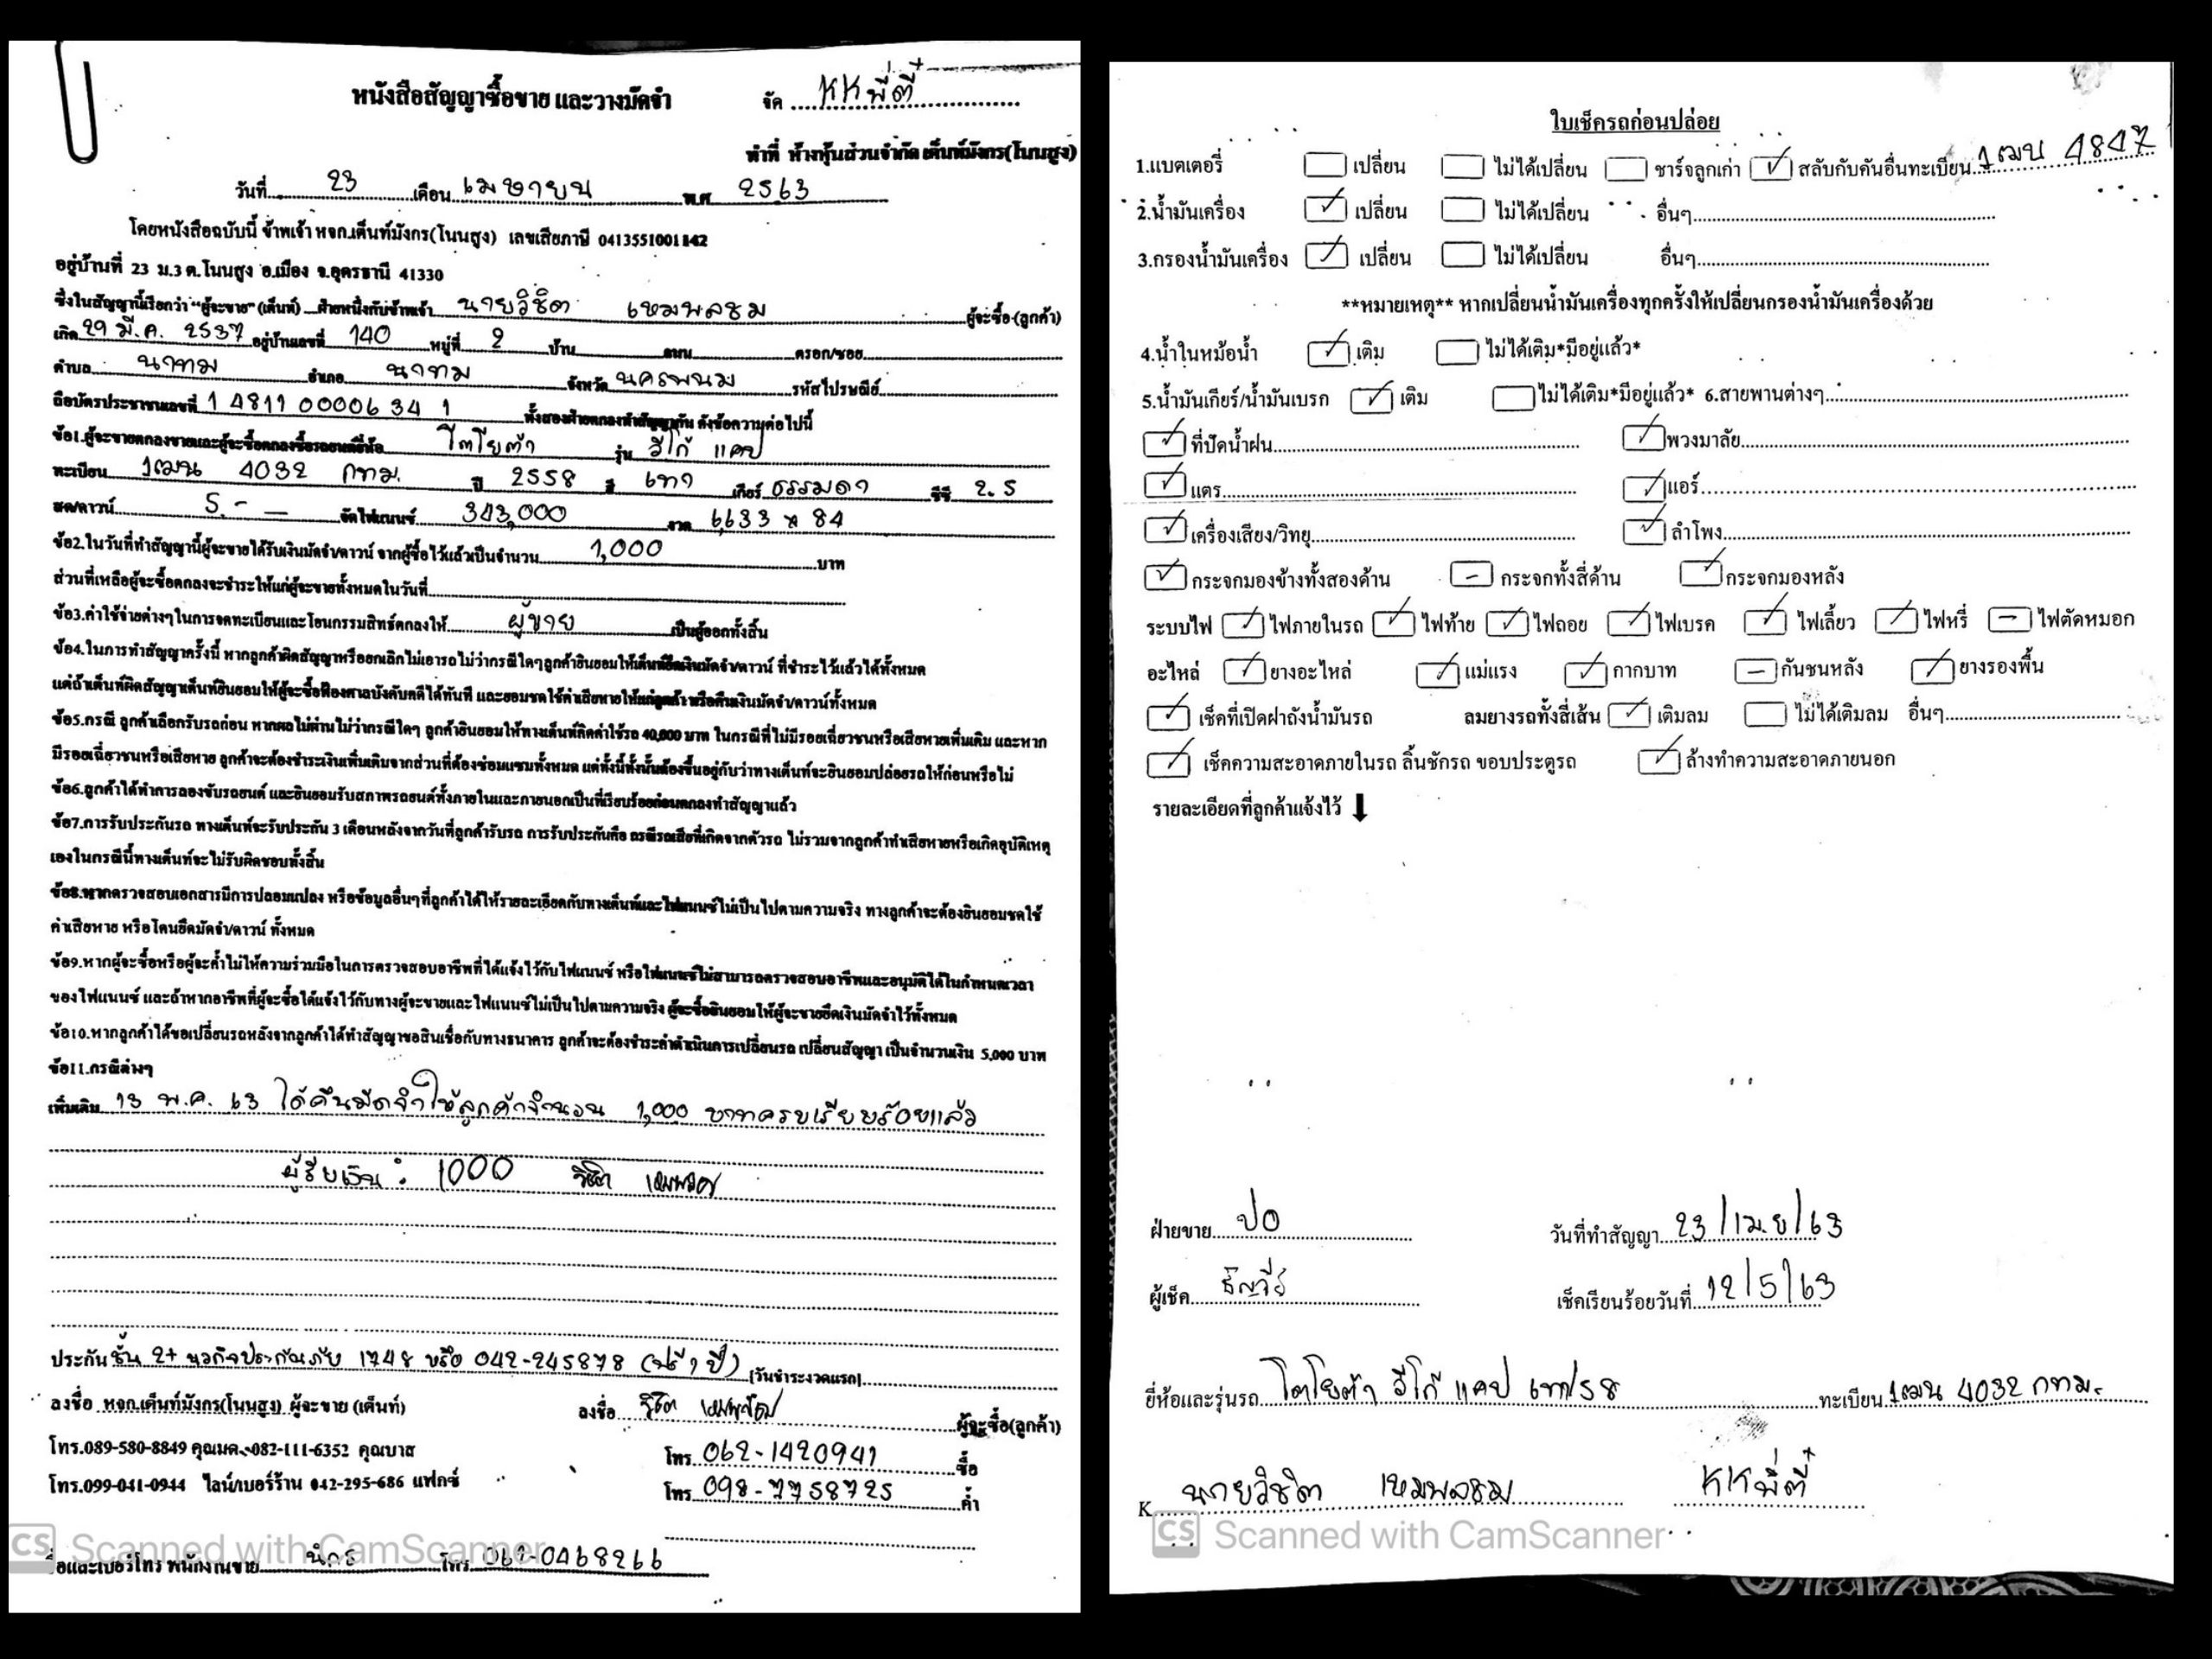 หนังสือสัญญาซื้อขาย และวางมัดจำ
จัด KK พี่ตี๋
ทำที่ ห้างหุ้นส่วนจำกัด เต็นท์มังกร(โนนสูง)
วันที่ 23 เดือน เมษายน พ.ศ. 2563
โดยหนังสือฉบับนี้ ข้าพเจ้า หจก.เต็นท์มังกร(โนนสูง) เลขเสียภาษี 0413551001142
อยู่บ้านที่ 23 ม.3 ต.โนนสูง อ.เมือง จ.อุดรธานี 41330
ซึ่งในสัญญานี้เรียกว่า "ผู้จะขาย" (เต็นท์) ฝ่ายหนึ่งกับข้าพเจ้า นายวิชิต เหมพลชม ผู้จะซื้อ (ลูกค้า)
เกิด 29 มี.ค. 2537 อยู่บ้านเลขที่ 140 หมู่ที่ 2 บ้าน ถนน ตรอก/ซอย
ตำบล นาทม อำเภอ นาทม จังหวัด นครพนม รหัสไปรษณีย์
ถือบัตรประชาชนเลขที่ 1 4811 00006 34 1 ทั้งสองฝ่ายตกลงทำสัญญากัน ดังข้อความต่อไปนี้
ข้อ1.ผู้จะขายตกลงขายและผู้จะซื้อตกลงซื้อรถยนต์ยี่ห้อ โตโยต้า รุ่น วีโก้ แคป
ทะเบียน 1ฒน 4032 กทม. ปี 2558 สี เทา เกียร์ ธรรมดา ซีซี 2.5
สด/ดาวน์ 5.- จัดไฟแนนซ์ 343,000 งวด 6,633 x 84
ข้อ2.ในวันที่ทำสัญญานี้ผู้จะขายได้รับเงินมัดจำ/ดาวน์ จากผู้ซื้อไว้แล้วเป็นจำนวน 1,000 บาท
ส่วนที่เหลือผู้จะซื้อตกลงจะชำระให้แก่ผู้จะขายทั้งหมดในวันที่
ข้อ3.ค่าใช้จ่ายต่างๆในการจดทะเบียนและโอนกรรมสิทธ์ตกลงให้ ผู้ขาย เป็นผู้ออกทั้งสิ้น
ข้อ4.ในการทำสัญญาครั้งนี้ หากลูกค้าผิดสัญญาหรือยกเลิกไม่เอารถไม่ว่ากรณีใดๆลูกค้ายินยอมให้เต็นท์ยึดเงินมัดจำ/ดาวน์ ที่ชำระไว้แล้วได้ทั้งหมด
แต่ถ้าเต็นท์ผิดสัญญาเต็นท์ยินยอมให้ผู้จะซื้อฟ้องศาลบังคับคดีได้ทันที และยอมชดใช้ค่าเสียหายให้แก่ลูกค้า หรือคืนเงินมัดจำ/ดาวน์ทั้งหมด
ข้อ5.กรณี ลูกค้าเลือกรับรถก่อน หากผลไม่ผ่านไม่ว่ากรณีใดๆ ลูกค้ายินยอมให้ทางเต็นท์คิดค่าใช้รถ 40,000 บาท ในกรณีที่ไม่มีรอยเฉี่ยวชนหรือเสียหายเพิ่มเติม และหาก
มีรอยเฉี่ยวชนหรือเสียหาย ลูกค้าจะต้องชำระเงินเพิ่มเติมจากส่วนที่ต้องซ่อมแซมทั้งหมด แต่ทั้งนี้ทั้งนั้นต้องขึ้นอยู่กับว่าทางเต็นท์จะยินยอมปล่อยรถให้ก่อนหรือไม่
ข้อ6.ลูกค้าได้ทำการลองขับรถยนต์ และยินยอมรับสภาพรถยนต์ทั้งภายในและภายนอกเป็นที่เรียบร้อยก่อนตกลงทำสัญญาแล้ว
ข้อ7.การรับประกันรถ ทางเต็นท์จะรับประกัน 3 เดือนหลังจากวันที่ลูกค้ารับรถ การรับประกันคือ กรณีรถเสียที่เกิดจากตัวรถ ไม่รวมจากลูกค้าทำเสียหายหรือเกิดอุบัติเหตุ
เองในกรณีนี้ทางเต็นท์จะไม่รับผิดชอบทั้งสิ้น
ข้อ8.หากตรวจสอบเอกสารมีการปลอมแปลง หรือข้อมูลอื่นๆที่ลูกค้าได้ให้รายละเอียดกับทางเต็นท์และไฟแนนซ์ไม่เป็นไปตามความจริง ทางลูกค้าจะต้องยินยอมชดใช้
ค่าเสียหาย หรือโดนยึดมัดจำ/ดาวน์ ทั้งหมด
ข้อ9.หากผู้จะซื้อหรือผู้จะค้ำไม่ให้ความร่วมมือในการตรวจสอบอาชีพที่ได้แจ้งไว้กับไฟแนนซ์ หรือไฟแนนซ์ไม่สามารถตรวจสอบอาชีพและอนุมัติได้ในกำหนดเวลา
ของไฟแนนซ์ และถ้าหากอาชีพที่ผู้จะซื้อได้แจ้งไว้กับทางผู้จะขายและไฟแนนซ์ไม่เป็นไปตามความจริง ผู้จะซื้อยินยอมให้ผู้จะขายยึดเงินมัดจำไว้ทั้งหมด
ข้อ10.หากลูกค้าได้ขอเปลี่ยนรถหลังจากลูกค้าได้ทำสัญญาขอสินเชื่อกับทางธนาคาร ลูกค้าจะต้องชำระค่าดำเนินการเปลี่ยนรถ เปลี่ยนสัญญา เป็นจำนวนเงิน 5,000 บาท
ข้อ11.กรณีต่างๆ
เพิ่มเติม 13 พ.ค. 63 ได้คืนมัดจำให้ลูกค้าจำนวน 1,000 บาทครบเรียบร้อยแล้ว
ผู้รับเงิน : 1000 วิชิต
ประกัน ชั้น 2+ นวกิจประกันภัย 1748 หรือ 042-245878 (ฟรี 1 ปี) [วันชำระงวดแรก]
ลงชื่อ หจก.เต็นท์มังกร(โนนสูง) ผู้จะขาย (เต็นท์)
ลงชื่อ วิชิต ผู้จะซื้อ(ลูกค้า)
โทร.089-580-8849 คุณมด 082-111-6352 คุณบาส
โทร. 062-1420941 ซื้อ
โทร.099-041-0944 ไลน์/เบอร์ร้าน 042-295-686 แฟกซ์
โทร. 098-7758725 ค้ำ
ชื่อและเบอร์โทร พนักงานขาย โทร 062-0468266
CS Scanned with CamScanner
ใบเช็ครถก่อนปล่อย
1.แบตเตอรี่ เปลี่ยน ไม่ได้เปลี่ยน ชาร์จลูกเก่า ✓ สลับกับคันอื่นทะเบียน 1ฒน 4847
2.น้ำมันเครื่อง ✓ เปลี่ยน ไม่ได้เปลี่ยน อื่นๆ
3.กรองน้ำมันเครื่อง ✓ เปลี่ยน ไม่ได้เปลี่ยน อื่นๆ
**หมายเหตุ** หากเปลี่ยนน้ำมันเครื่องทุกครั้งให้เปลี่ยนกรองน้ำมันเครื่องด้วย
4.น้ำในหม้อน้ำ ✓ เติม ไม่ได้เติม*มีอยู่แล้ว*
5.น้ำมันเกียร์/น้ำมันเบรก ✓ เติม ไม่ได้เติม*มีอยู่แล้ว* 6.สายพานต่างๆ
✓ ที่ปัดน้ำฝน ✓ พวงมาลัย
✓ แตร ✓ แอร์
✓ เครื่องเสียง/วิทยุ ✓ ลำโพง
✓ กระจกมองข้างทั้งสองด้าน - กระจกทั้งสี่ด้าน ✓ กระจกมองหลัง
ระบบไฟ ✓ ไฟภายในรถ ✓ ไฟท้าย ✓ ไฟถอย ✓ ไฟเบรค ✓ ไฟเลี้ยว ✓ ไฟหรี่ - ไฟตัดหมอก
อะไหล่ ✓ ยางอะไหล่ ✓ แม่แรง ✓ กากบาท - กันชนหลัง ✓ ยางรองพื้น
✓ เช็คที่เปิดฝาถังน้ำมันรถ ลมยางรถทั้งสี่เส้น ✓ เติมลม ไม่ได้เติมลม อื่นๆ
✓ เช็คความสะอาดภายในรถ ลิ้นชักรถ ขอบประตูรถ ✓ ล้างทำความสะอาดภายนอก
รายละเอียดที่ลูกค้าแจ้งไว้
ฝ่ายขาย ปอ วันที่ทำสัญญา 23/เม.ย/63
ผู้เช็ค เช็คเรียบร้อยวันที่ 12/5/63
ยี่ห้อและรุ่นรถ โตโยต้า วีโก้ แคป เทา/58 ทะเบียน 1ฒน 4032 กทม.
K นายวิชิต เหมพลชม KK พี่ตี๋
CS Scanned with CamScanner